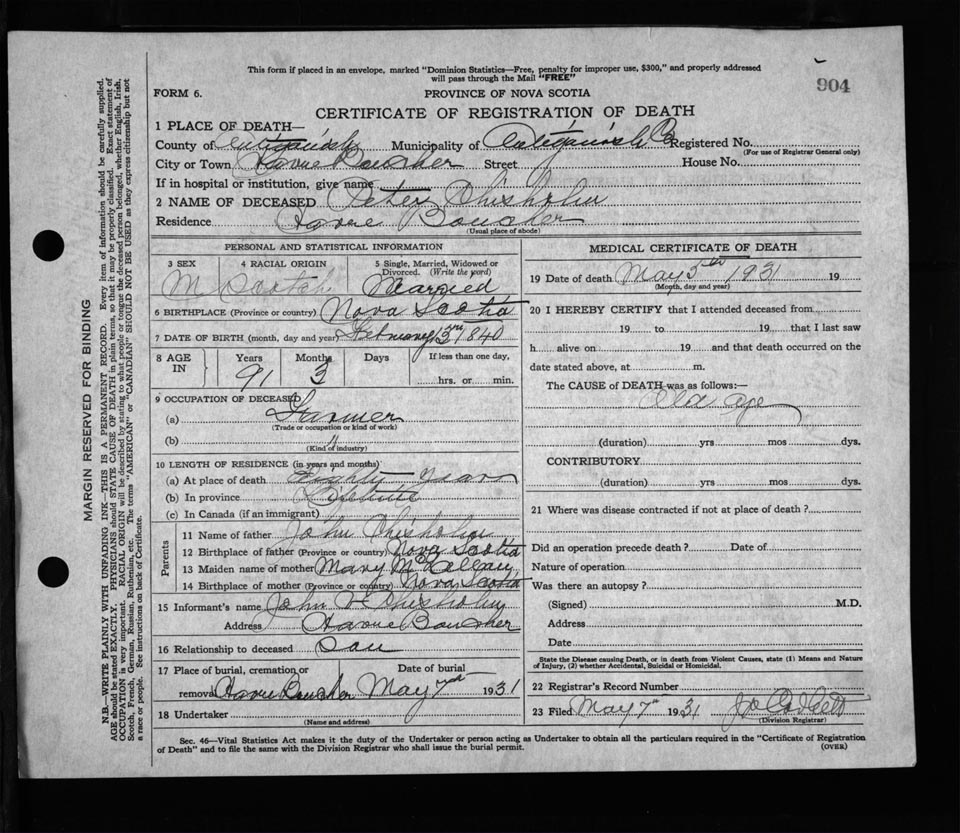 904
This form if placed in an envelope, marked "Dominion Statistics—Free, penalty for improper use, $300," and properly addressed
will pass through the Mail "FREE"
FORM 6. PROVINCE OF NOVA SCOTIA
CERTIFICATE OF REGISTRATION OF DEATH
1 PLACE OF DEATH—
County of Antigonish Municipality of Antigonish Registered No.
(For use of Registrar General only)
City or Town Havre Boucher Street House No.
If in hospital or institution, give name
2 NAME OF DECEASED Peter Chisholm
Residence Havre Boucher
(Usual place of abode)
PERSONAL AND STATISTICAL INFORMATION
3 SEX 4 RACIAL ORIGIN 5 Single, Married, Widowed or
Divorced. (Write the word)
M Scotch Married
6 BIRTHPLACE (Province or country) Nova Scotia
7 DATE OF BIRTH (month, day and year) February 1840
8 AGE IN Years Months Days If less than one day,
91 3 hrs. or min.
9 OCCUPATION OF DECEASED
(a) Farmer
(Trade or occupation or kind of work)
(b) "
(Kind of industry)
10 LENGTH OF RESIDENCE (in years and months)
(a) At place of death Eighty years
(b) In province
(c) In Canada (if an immigrant)
Parents
11 Name of father John Chisholm
12 Birthplace of father (Province or country) Nova Scotia
13 Maiden name of mother Mary
14 Birthplace of mother (Province or country) Nova Scotia
15 Informant's name John Chisholm
Address Havre Boucher
16 Relationship to deceased Son
17 Place of burial, cremation or Date of burial
removal Havre Boucher May 7 1931
18 Undertaker
(Name and address)
MEDICAL CERTIFICATE OF DEATH
19 Date of death May 5th 1931 19
(Month, day and year)
20 I HEREBY CERTIFY that I attended deceased from
19 to 19 that I last saw
h alive on 19 and that death occurred on the
date stated above, at m.
The CAUSE of DEATH was as follows:—
Old age
(duration) yrs mos dys.
CONTRIBUTORY
(duration) yrs mos dys.
21 Where was disease contracted if not at place of death?
Did an operation precede death? Date of
Nature of operation
Was there an autopsy?
(Signed) M.D.
Address
Date
State the Disease causing Death, or in death from Violent Causes, state (1) Means and Nature
of Injury, (2) whether Accidental, Suicidal or Homicidal.
22 Registrar's Record Number
23 Filed May 7th 1931
(Division Registrar)
Sec. 46—Vital Statistics Act makes it the duty of the Undertaker or person acting as Undertaker to obtain all the particulars required in the "Certificate of Registration
of Death" and to file the same with the Division Registrar who shall issue the burial permit.
(OVER)
MARGIN RESERVED FOR BINDING
N.B.—WRITE PLAINLY WITH UNFADING INK—THIS IS A PERMANENT RECORD. Every item of information should be carefully supplied.
AGE should be stated EXACTLY. PHYSICIANS should STATE CAUSE OF DEATH in plain terms, so that it may be properly classified. Exact statement of
OCCUPATION is very important. RACIAL ORIGIN will be described by stating to what people or tongue the deceased person belonged, whether English, Irish,
Scotch, French, German, Russian, Ruthenian, etc. The terms "AMERICAN" or "CANADIAN" SHOULD NOT BE USED as they express citizenship but not
a race or people. See instructions on back of Certificate.